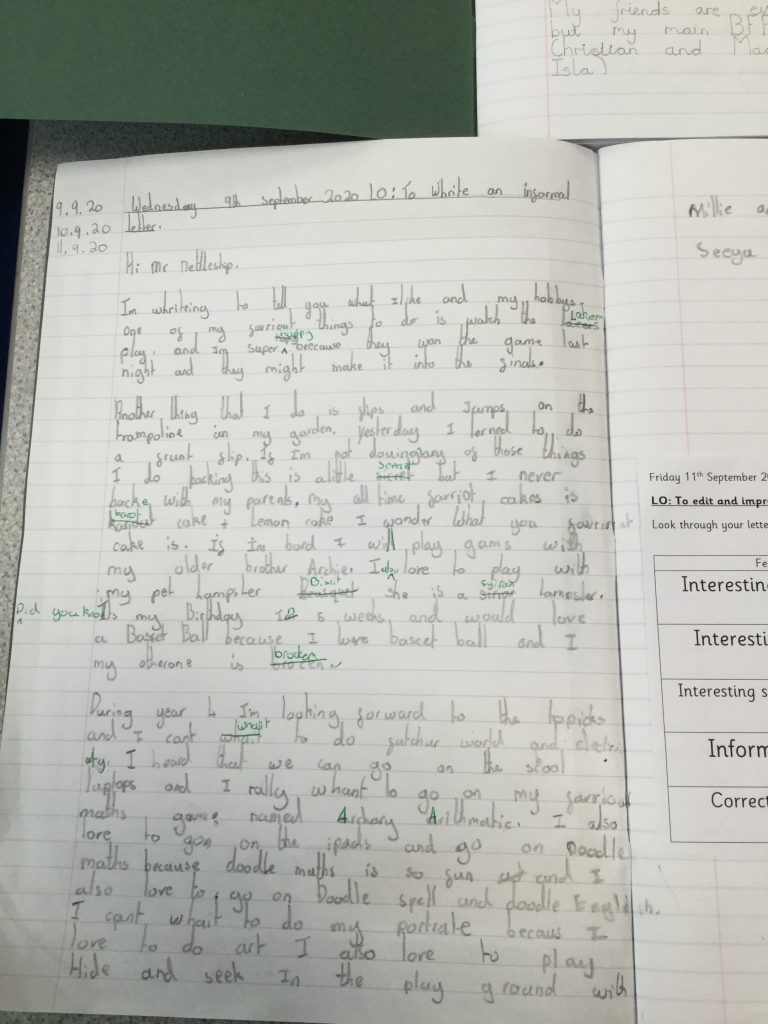 My friends are
but my main BFF
Christian and
Isla)
9.9.20
10.9.20
11.9.20
Wednesday 9th September 2020 LO: To Whrite an informal
letter.
Hi Mr nettleship.
Im whriteing to tell you what I like and my hobbys,
one of my farriout things to do is watch the Laker
play. and Im super happy beccause they won the game last
night and they might make it into the finals.
Another thing that I do is flips and Jumps on the
trampoline in my garden. yesterday I lerned to do
a frunt flip. If Im not douingiany of those things
I do backing this is alittle seecret but I never
backe with my parents. my all time farriot cakes is
karot cake + Lemon cake I wonder What you fourir t
cake is. If Im bord I will play gams with
my older brother Archie. I also love to play with
my pet hampster Biscit she is a syrian hamester.
Did you know Its my Birthday In 5 weeks and would love
a Basset Ball because I love bascet ball and I
my otherone is brocken
During year 4 Im looking forward to the toppicks
and I cant whait to do futchur world and eletri
aty. I heard that we can go on the scool
laptops and I rally whant to go on my farriout
maths game named Archary Arithmatic. I also
love to gon on the ipads and go on Doodle
maths because doodle muths is so fun and I
also love to go on Doodle spell and doodle English.
I cant whait to do my Portrate becaus I
love to do art I also love to play
Hide and seek In the play ground with
Millie
Seeya
Friday 11th September 2
LO: To edit and impr
Look through your lette
Fe
Interestin
Interesti
Interesting s
Inform
Correct